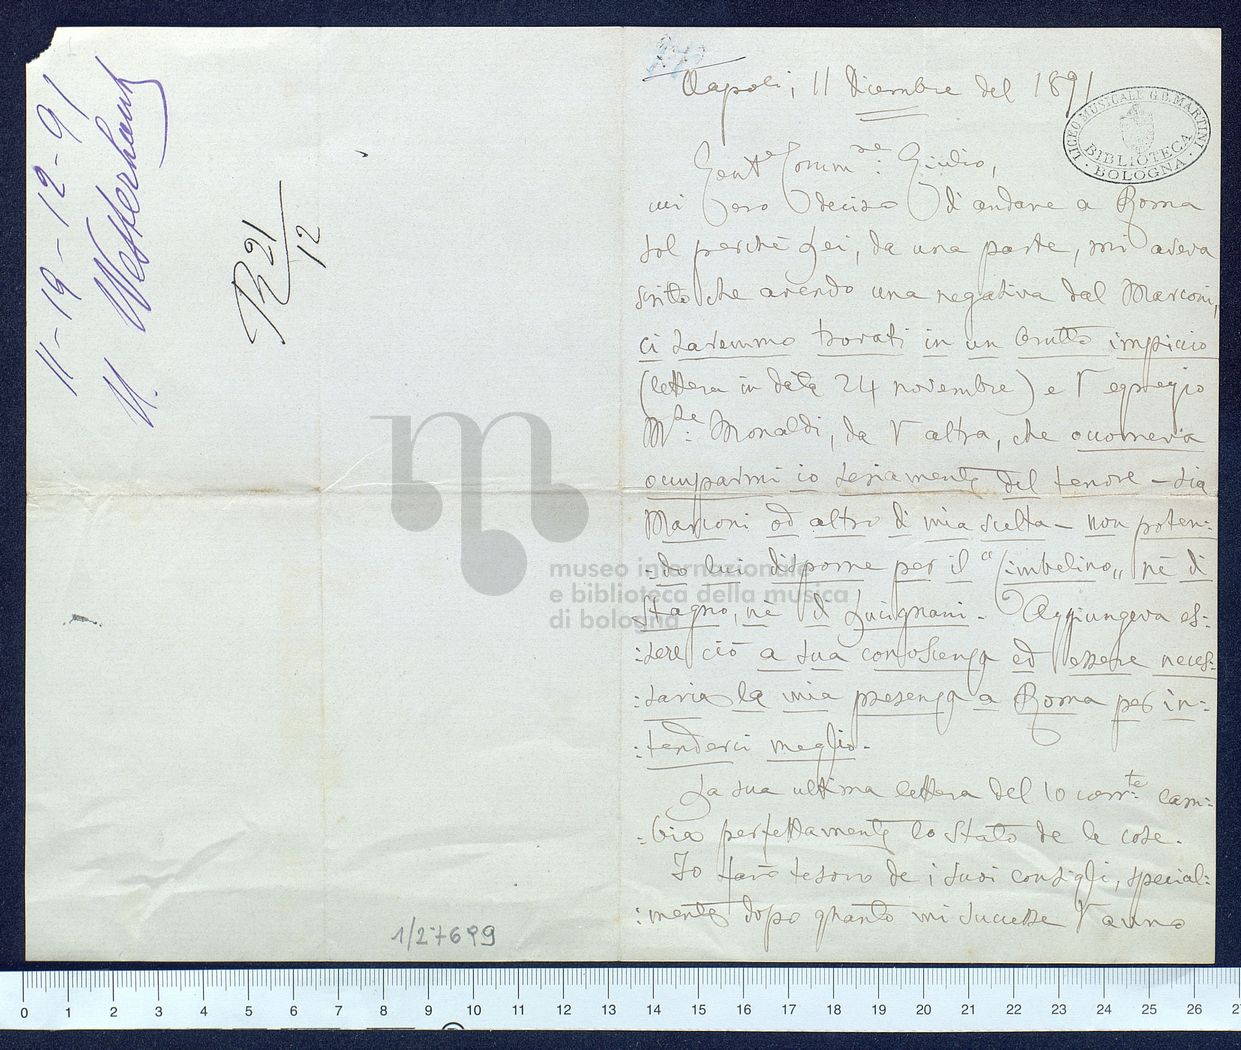 11-19-12-91
N. Westerhout
R 21/12
1/27699
Napoli, 11 Dicembre del 1891
LICEO MUSICALE G.B. MARTINI
BIBLIOTECA
BOLOGNA
Gent.e Comm.re Giulio,
mi ero deciso d'andare a Roma
sol perchè Lei, da una parte, mi aveva
scritto che avendo una negativa dal Marconi,
ci saremmo trovati in un brutto impiccio
(lettera in data 24 novembre) e l'egregio
M.se Monaldi, da l'altra, che occorreva
occuparmi io seriamente del tenore - sia
Marconi od altro di mia scelta - non poten:
:do lui disporre per il "Cimbelino„ nè di
Stagno, nè di Lucignani. Aggiungeva es:
:sere ciò a sua conoscenza ed essere neces:
:saria la mia presenza a Roma per in:
:tenderci meglio.
La sua ultima lettera del 10 corr.te cam:
:bia perfettamente lo stato de le cose.
Io farò tesoro de i suoi consigli, special:
:mente dopo quanto mi successe l'anno
museo internazionale
e biblioteca della musica
di bologna
0 1 2 3 4 5 6 7 8 9 10 11 12 13 14 15 16 17 18 19 20 21 22 23 24 25 26 27